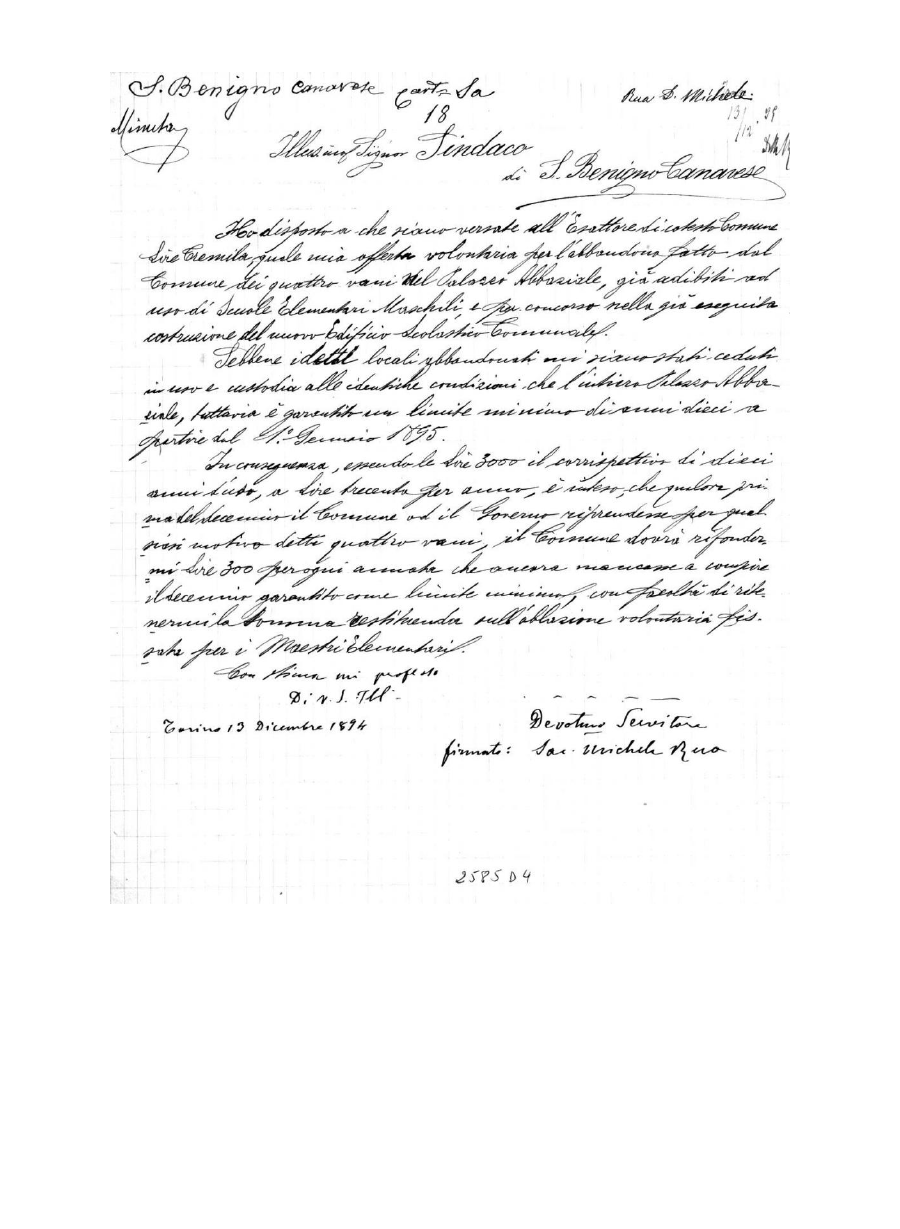 S. Benigno Canavese Cart. Sa
18
Rua D. Michele.
13/12
Minuta
Illus.mo Signor Sindaco
di S. Benigno Canavese
Ho disposto a che siano versate all'Esattore di cotesto Comune
Lire Tremila, quale mia offerta volontaria per l'abbandono fatto dal
Comune dei quattro vani del Palazzo Abbaziale, già adibiti ad
uso di Scuole Elementari Maschili, e per concorso nella già eseguita
costruzione del nuovo Edificio Scolastico Comunale.
Sebbene i detti locali abbandonati mi siano stati ceduti
in uso e custodia alle identiche condizioni che l'intiero Palazzo Abba-
ziale, tuttavia è garantito un limite minimo di anni dieci a
partire dal 1.º Gennaio 1895.
In conseguenza, essendo le Lire 3000 il corrispettivo di dieci
anni d'uso, a Lire trecento per anno, è inteso, che qualora pri-
ma del decennio il Comune od il Governo riprendesse per qual-
siasi motivo detti quattro vani, il Comune dovrà rifonder-
mi Lire 300 per ogni annata che ancora mancasse a compire
il decennio garantito come limite minimo, con facoltà di rite-
nermi la somma restituenda sull'oblazione volontaria fis-
sata per i Maestri Elementari.
Con stima mi professo
Di V. S. Ill
Torino 13 Dicembre 1894
Devotmo Servitore
firmato: Sac. Michele Rua
2585 D4